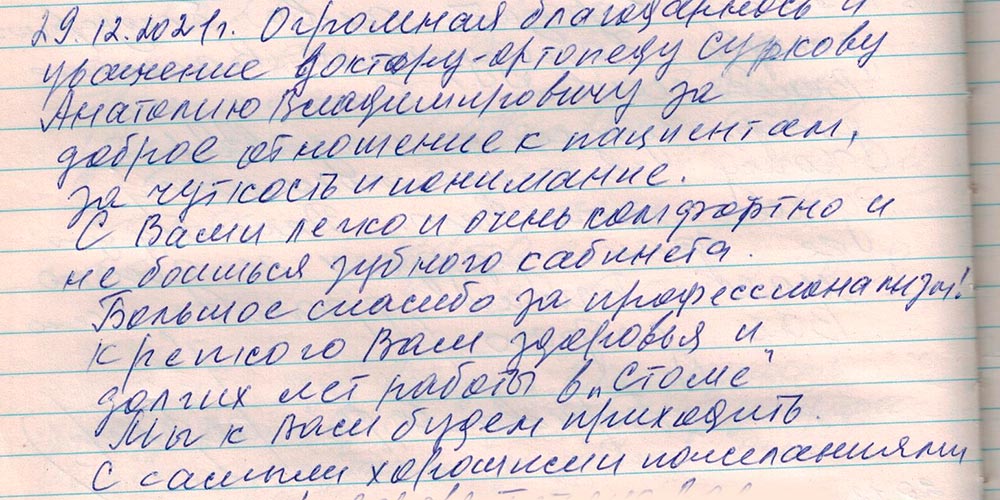 29.12.2021г. Огромная благодарность и
уважение доктору-ортопеду Суркову
Анатолию Владимировичу за
доброе отношение к пациентам,
за чуткость и понимание.
С Вами легко и очень комфортно и
не боишься зубного кабинета.
Большое спасибо за профессионализм!
Крепкого Вам здоровья и
долгих лет работы в „Стоме"
Мы к Вам будем приходить.
С самыми хорошими пожеланиями